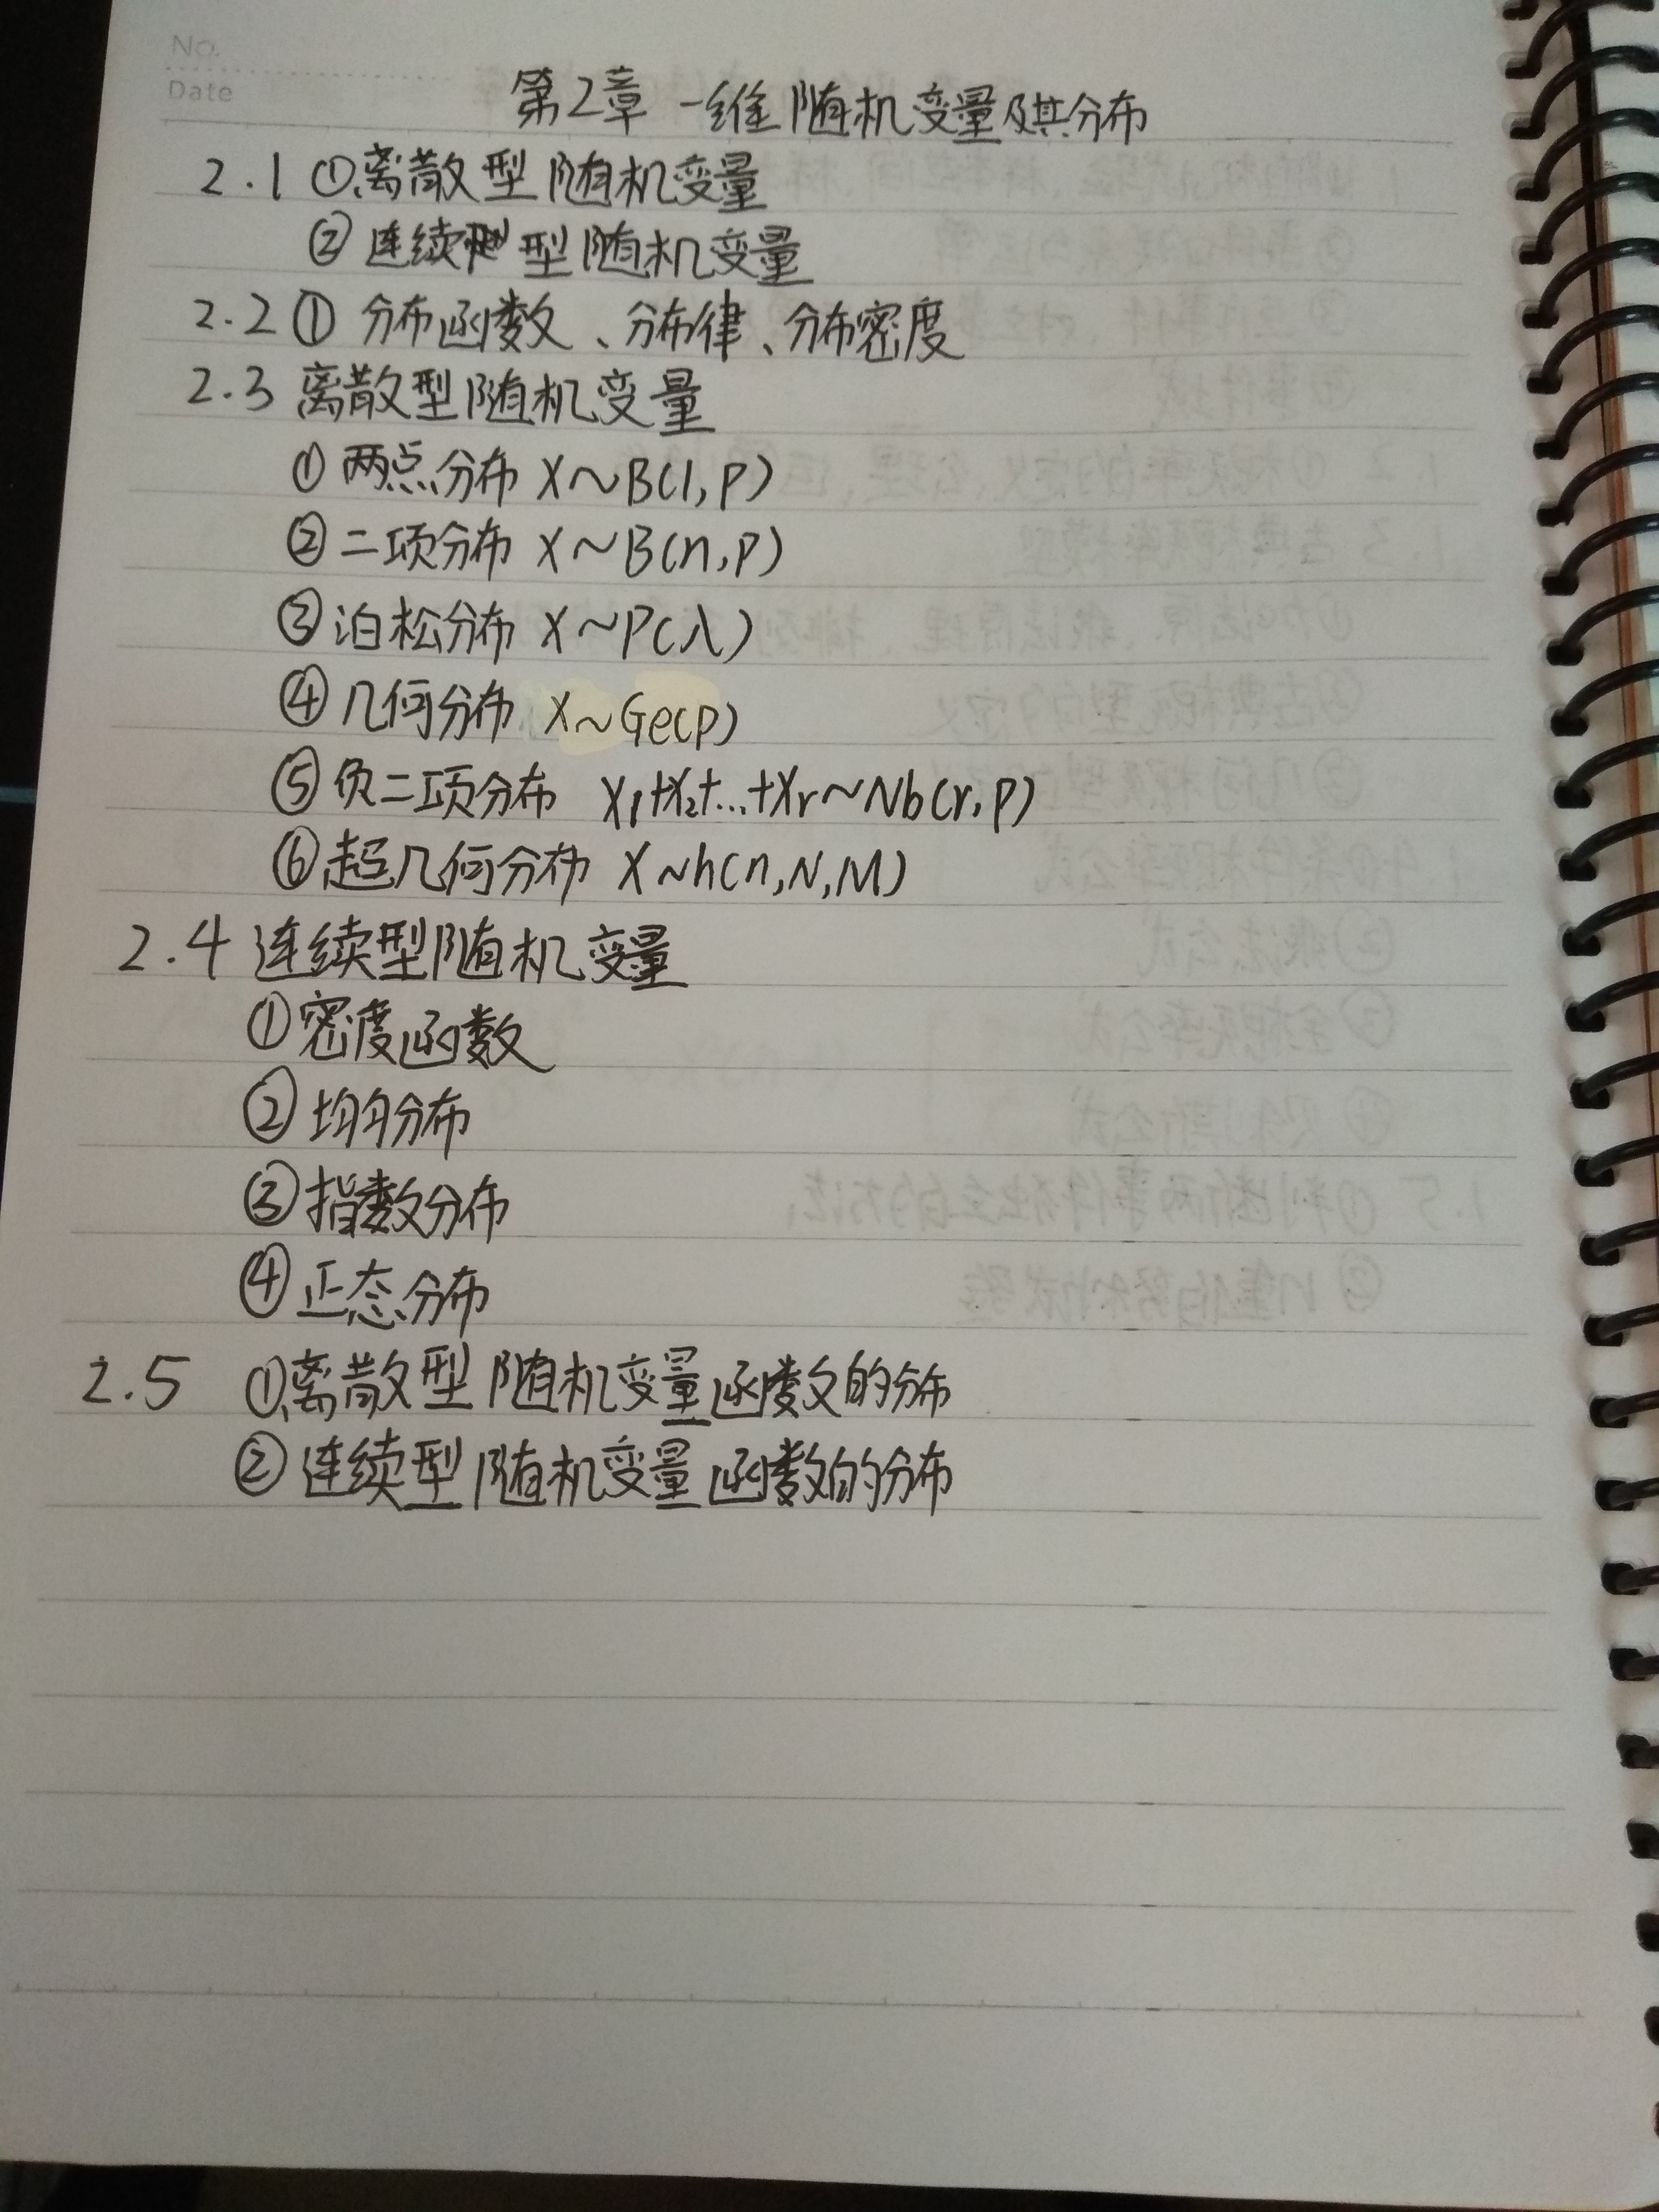 No.
Date
第2章 一维随机变量及其分布
2.1 ①离散型随机变量
② 连续型随机变量
2.2 ① 分布函数、分布律、分布密度
2.3 离散型随机变量
① 两点分布 X~B(1,P)
② 二项分布 X~B(n,p)
③ 泊松分布 X~P(λ)
④ 几何分布 X~Ge(p)
⑤ 负二项分布 X₁+X₂+...+Xr~Nb(r,p)
⑥ 超几何分布 X~h(n,N,M)
2.4 连续型随机变量
① 密度函数
② 均匀分布
③ 指数分布
④ 正态分布
2.5 ①离散型随机变量函数的分布
② 连续型随机变量函数的分布